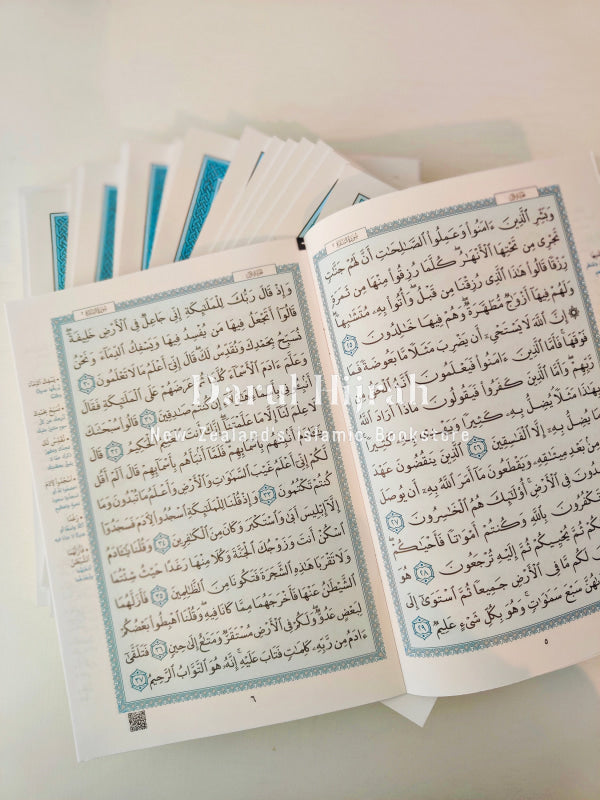 سُورَةُ البَقَرَةِ ٢
وَبَشِّرِ الَّذِينَ ءَامَنُوا وَعَمِلُوا الصَّالِحَاتِ أَنَّ لَهُمْ جَنَّاتٍ
تَجْرِي مِن تَحْتِهَا الْأَنْهَارُ كُلَّمَا رُزِقُوا مِنْهَا مِن ثَمَرَةٍ
رِّزْقًا قَالُوا هَٰذَا الَّذِي رُزِقْنَا مِن قَبْلُ وَأُتُوا بِهِ مُتَشَابِهًا
وَلَهُمْ فِيهَا أَزْوَاجٌ مُّطَهَّرَةٌ وَهُمْ فِيهَا خَالِدُونَ ٢٥
إِنَّ اللَّهَ لَا يَسْتَحْيِي أَن يَضْرِبَ مَثَلًا مَّا بَعُوضَةً فَمَا
فَوْقَهَا فَأَمَّا الَّذِينَ ءَامَنُوا فَيَعْلَمُونَ أَنَّهُ الْحَقُّ مِن
رَّبِّهِمْ وَأَمَّا الَّذِينَ كَفَرُوا فَيَقُولُونَ مَاذَا أَرَادَ اللَّهُ
بِهَٰذَا مَثَلًا يُضِلُّ بِهِ كَثِيرًا وَيَهْدِي بِهِ كَثِيرًا
يُضِلُّ بِهِ إِلَّا الْفَاسِقِينَ ٢٦ الَّذِينَ يَنقُضُونَ عَهْدَ
مِن بَعْدِ مِيثَاقِهِ وَيَقْطَعُونَ مَا أَمَرَ اللَّهُ بِهِ أَن يُوصَلَ
فِي الْأَرْضِ أُولَٰئِكَ هُمُ الْخَاسِرُونَ ٢٧
تَكْفُرُونَ بِاللَّهِ وَكُنتُمْ أَمْوَاتًا فَأَحْيَاكُمْ
ثُمَّ يُحْيِيكُمْ ثُمَّ إِلَيْهِ تُرْجَعُونَ ٢٨ هُوَ
لَكُم مَّا فِي الْأَرْضِ جَمِيعًا ثُمَّ اسْتَوَىٰ إِلَى
سَبْعَ سَمَاوَاتٍ وَهُوَ بِكُلِّ شَيْءٍ عَلِيمٌ ٢٩
٥
سُورَةُ البَقَرَةِ ٢
وَإِذْ قَالَ رَبُّكَ لِلْمَلَائِكَةِ إِنِّي جَاعِلٌ فِي الْأَرْضِ خَلِيفَةً
قَالُوا أَتَجْعَلُ فِيهَا مَن يُفْسِدُ فِيهَا وَيَسْفِكُ الدِّمَاءَ وَنَحْنُ
نُسَبِّحُ بِحَمْدِكَ وَنُقَدِّسُ لَكَ قَالَ إِنِّي أَعْلَمُ مَا لَا تَعْلَمُونَ ٣٠
وَعَلَّمَ ءَادَمَ الْأَسْمَاءَ كُلَّهَا ثُمَّ عَرَضَهُمْ عَلَى الْمَلَائِكَةِ فَقَالَ
أَنبِئُونِي بِأَسْمَاءِ هَٰؤُلَاءِ إِن كُنتُمْ صَادِقِينَ ٣١ قَالُوا سُبْحَانَكَ
لَا عِلْمَ لَنَا إِلَّا مَا عَلَّمْتَنَا إِنَّكَ أَنتَ الْعَلِيمُ الْحَكِيمُ ٣٢ قَالَ
يَا ءَادَمُ أَنبِئْهُم بِأَسْمَائِهِمْ فَلَمَّا أَنبَأَهُم بِأَسْمَائِهِمْ قَالَ أَلَمْ أَقُل
لَّكُمْ إِنِّي أَعْلَمُ غَيْبَ السَّمَاوَاتِ وَالْأَرْضِ وَأَعْلَمُ مَا تُبْدُونَ وَمَا
كُنتُمْ تَكْتُمُونَ ٣٣ وَإِذْ قُلْنَا لِلْمَلَائِكَةِ اسْجُدُوا لِءَادَمَ فَسَجَدُوا
إِلَّا إِبْلِيسَ أَبَىٰ وَاسْتَكْبَرَ وَكَانَ مِنَ الْكَافِرِينَ ٣٤ وَقُلْنَا يَا ءَادَمُ
اسْكُنْ أَنتَ وَزَوْجُكَ الْجَنَّةَ وَكُلَا مِنْهَا رَغَدًا حَيْثُ شِئْتُمَا
وَلَا تَقْرَبَا هَٰذِهِ الشَّجَرَةَ فَتَكُونَا مِنَ الظَّالِمِينَ ٣٥ فَأَزَلَّهُمَا
الشَّيْطَانُ عَنْهَا فَأَخْرَجَهُمَا مِمَّا كَانَا فِيهِ وَقُلْنَا اهْبِطُوا بَعْضُكُمْ
لِبَعْضٍ عَدُوٌّ وَلَكُمْ فِي الْأَرْضِ مُسْتَقَرٌّ وَمَتَاعٌ إِلَىٰ حِينٍ ٣٦ فَتَلَقَّىٰ
ءَادَمُ مِن رَّبِّهِ كَلِمَاتٍ فَتَابَ عَلَيْهِ إِنَّهُ هُوَ التَّوَّابُ الرَّحِيمُ ٣٧
٦
Darul Hijrah
New Zealand's Islamic Bookstore